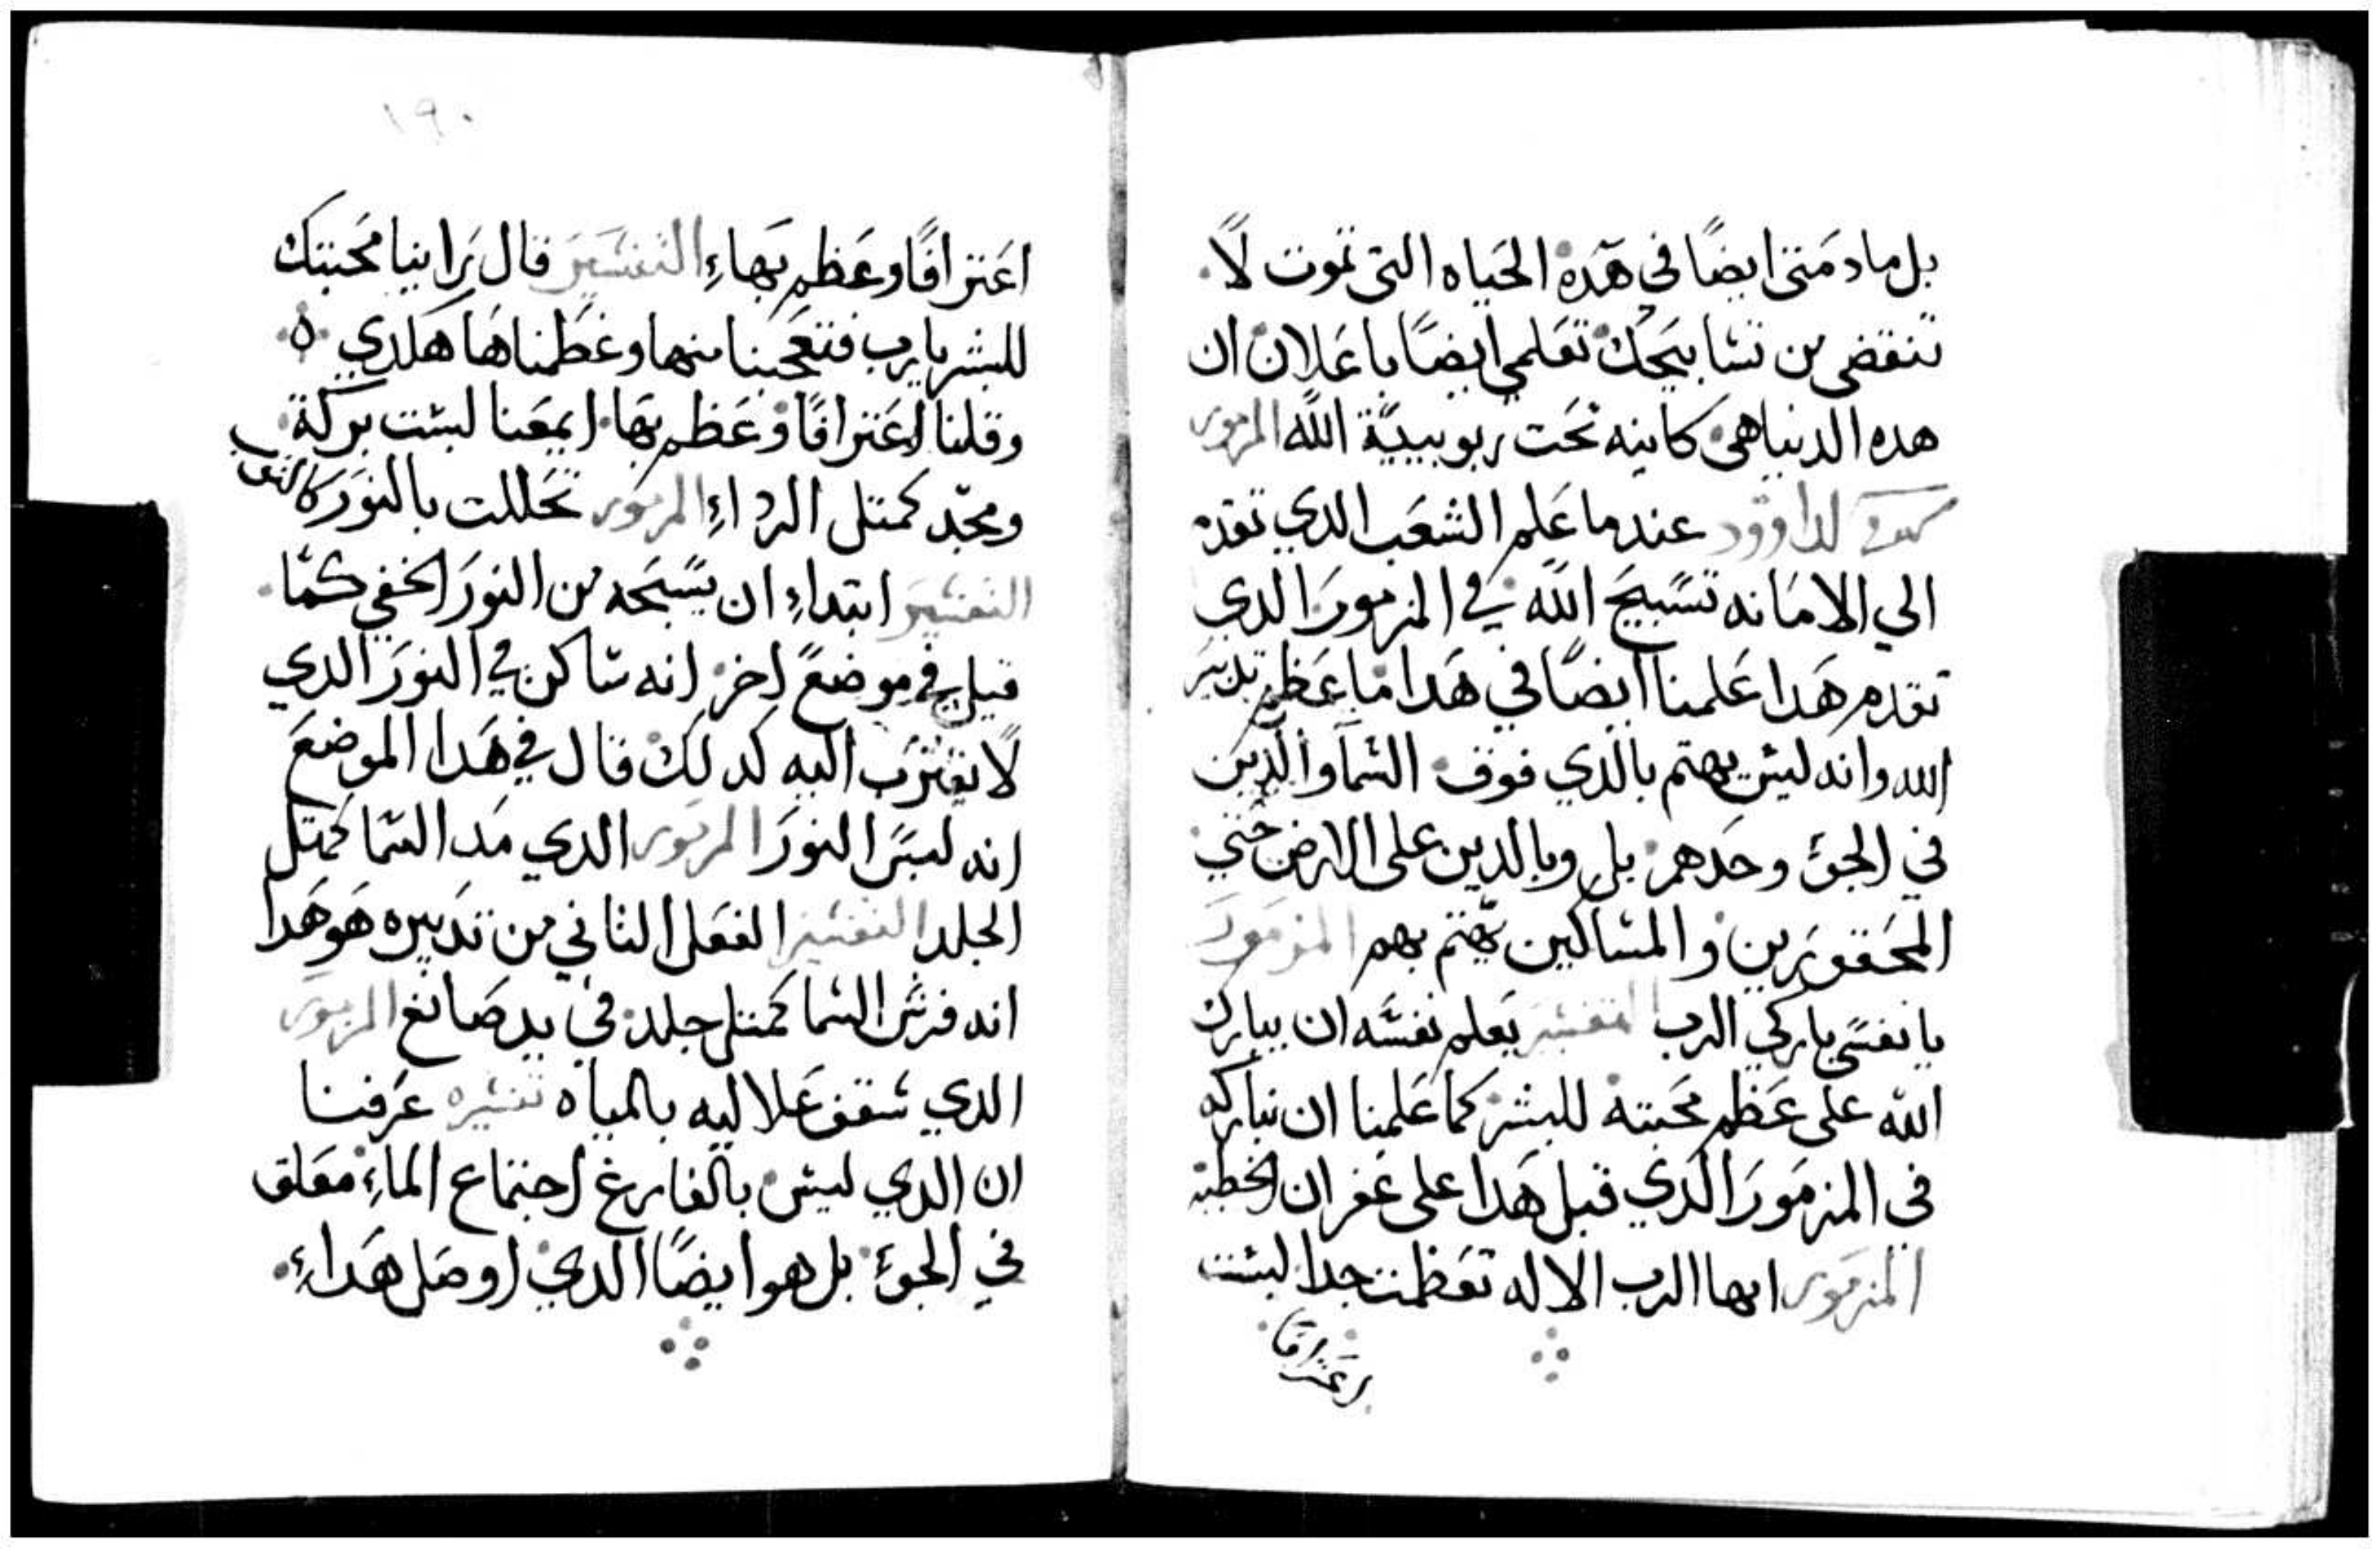 بل ما دمتي ايضًا في هذه الحياه التي تموت لا
تنقضي من تسابيحك تعلمي ايضًا باعلان ان
هده الدنيا هي كاينه تحت ربوبيية الله المزمور
لداوود عندما علم الشعب الدي تقدم
الي الامانه تسبيح الله في المزمور الدي
تقدم هدا علمنا ايضًا في هدا ما عظم تدبير
الله وانه ليس يهتم بالدي فوق السما والدين
في الجو وحدهم بل وبالدين على الارض حتي
المحقورين والمساكين يهتم بهم المزمور
يا نفسي باركي الرب التفسير يعلم نفسه ان يبارك
الله على عظم محبته للبشر كما علمنا ان نباركه
في المزمور الدي قبل هدا على غفران الخطية
المزمور ايها الرب الاله تعظمت جدا لبست
اعترافا
١٩٠
اعترافًا وعظم بهاءِ التفسير قال برانيا محبتك
للبشر يا رب فتعجبنا منها وعظمناها هكدي
وقلنا اعترافًا وعظم بها ايمعنا لبست بركة
ومجد كمتل الرداءِ المزمور تحللت بالنور كالتوب
التفسير ابتداءِ ان يسبحه من النور الخفي كما
قيل في موضع اخر انه ساكن في النور الدي
لا يقترب اليه كدلك قال في هدا الموضع
انه لبس النور المزمور الدي مد السما كمتل
الجلد التفسير الفعل التاني من تدبيره هو هدا
انه فرش السما كمتل جلد في يد صانع المزمور
الدي سقف علاليه بالمياه تفسيره عرفنا
ان الدي ليس بالفارغ اجتماع الماءِ معلق
في الجو بل هو ايضًا الدي اوصل هداءِ